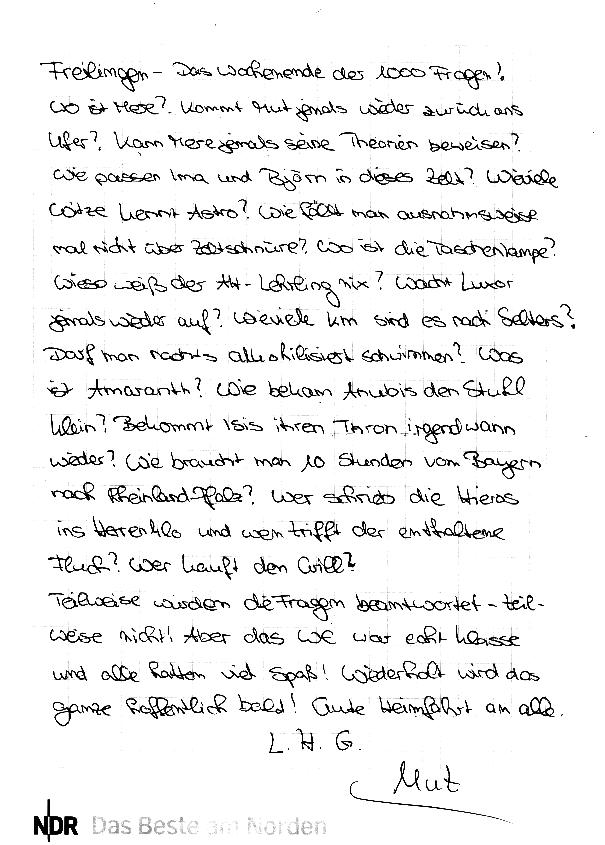 Freilingen - Das Wochenende der 1000 Fragen!
Wo ist Mese? Kommt Mut jemals wieder zurück ans
Ufer? Kann Mere jemals seine Theorien beweisen?
Wie passen Ima und Björn in dieses Zelt? Wieviele
Witze kennt Astro? Wie fällt man ausnahmsweise
mal nicht über Zeltschnüre? Wo ist die Taschenlampe?
Wieso weiß der AH-Lehrling nix? Wacht Luxor
jemals wieder auf? Wieviele km sind es nach Selters?
Darf man nachts alkoholisiert schwimmen? Was
ist Amaranth? Wie bekam Anubis den Stuhl
klein? Bekommt Isis ihren Thron irgendwann
wieder? Wie braucht man 10 Stunden vom Bayern
nach Rheinland-Pfalz? Wer schrieb die Hieros
ins Herrenklo und wen trifft der enthaltene
Fluch? Wer kauft den Grill?
Teilweise wurden die Fragen beantwortet - teil-
weise nicht! Aber das WE war echt klasse
und alle hatten viel Spaß! Wiederholt wird das
ganze hoffentlich bald! Gute Heimfahrt an alle.
L. H. G.
Mut
NDR Das Beste am Norden